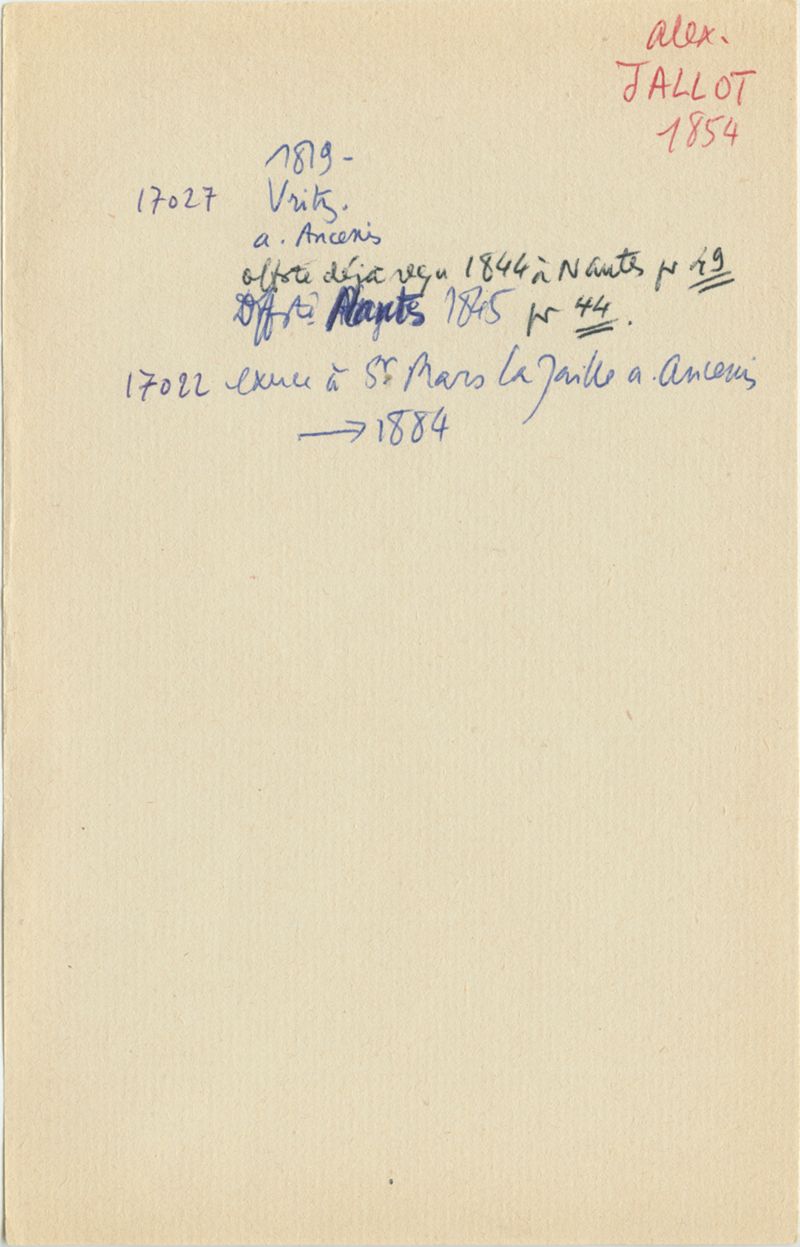 alex.
JALLOT
1854
1819 -
17027 Vritz.
a. Ancenis
offert déjà reçu 1844 à Nantes pr 49
Nantes 1845 pr 44.
17022 exerce à St Mars la Jaille a. Ancenis
→ 1884